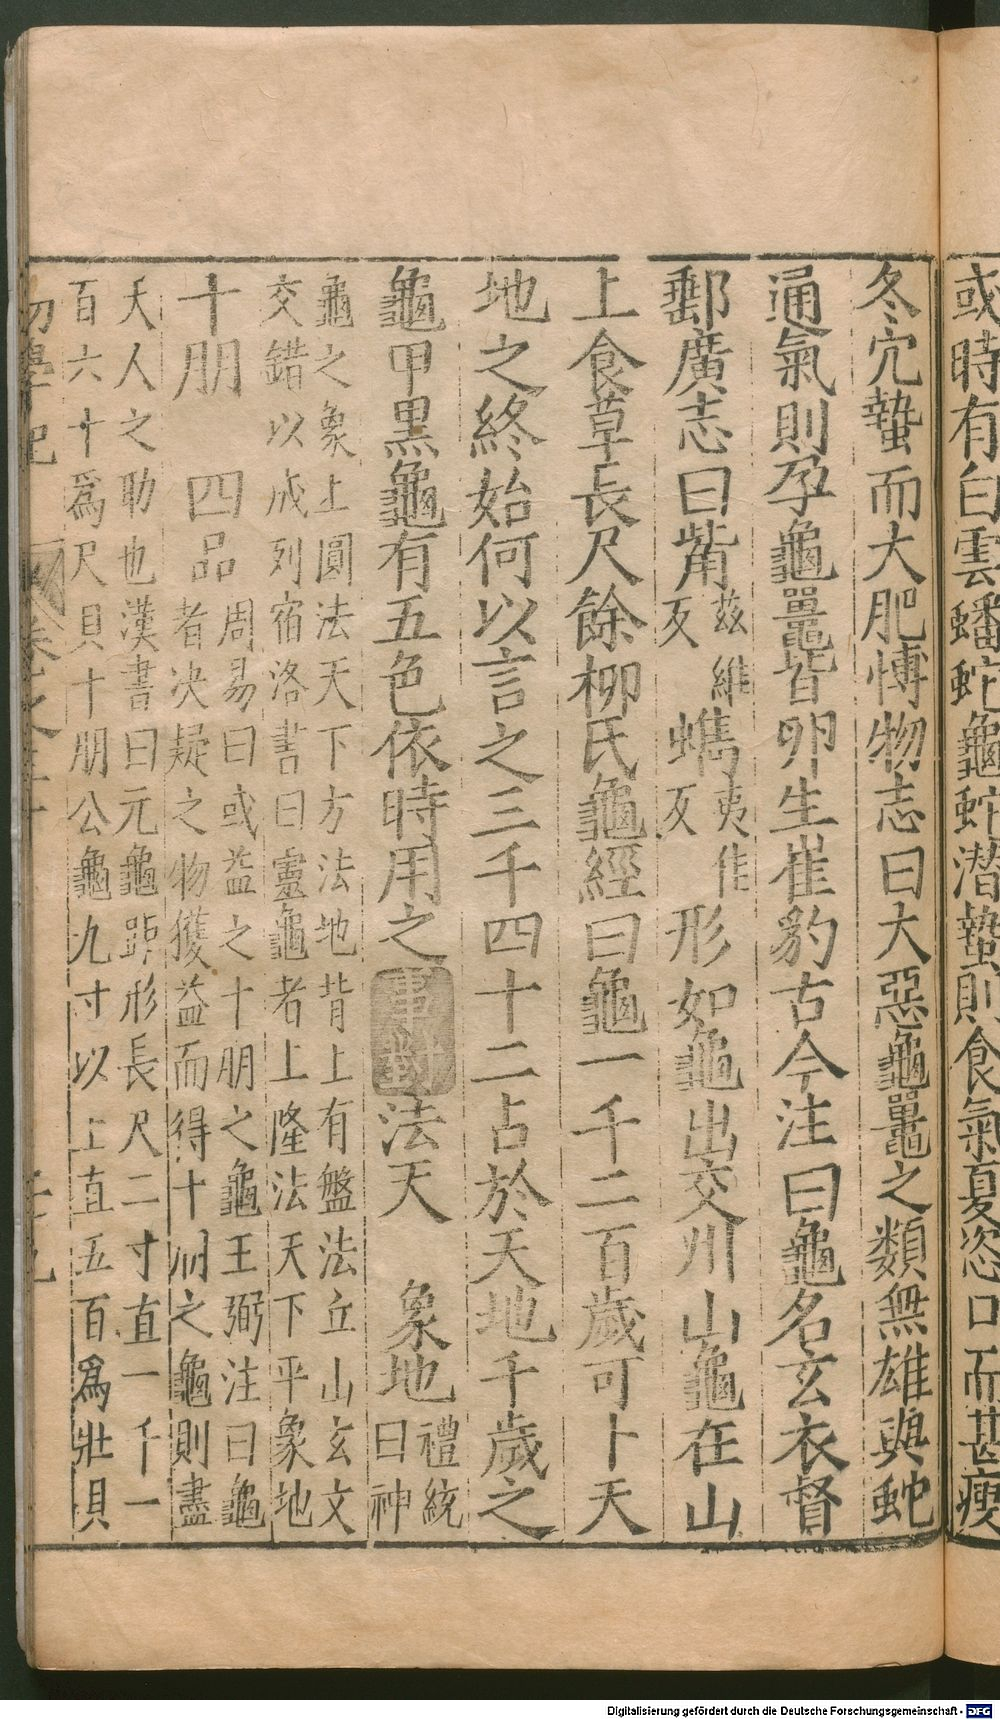 或時有白雲蟠蛇龜蛇潛蟄則食氣夏恣口而甚瘦
冬穴蟄而大肥博物志曰大惡龜鼉之類無雄與蛇
通氣則孕龜鼉皆卵生崔豹古今注曰龜名玄衣督
郵廣志曰觜
茲維
反
蠵
夷隹
反
形如龜出交州山龜在山
上食草長尺餘柳氏龜經曰龜一千二百歲可卜天
地之終始何以言之三千四十二占於天地千歲之
龜甲黑龜有五色依時用之
事對
法天 象地
禮統
曰神
龜之象上圓法天下方法地背上有盤法丘山玄文
交錯以成列宿洛書曰靈龜者上隆法天下平象地
十朋 四品
周易曰或益之十朋之龜王弼注曰龜
者决疑之物獲益而得十朋之龜則盡
天人之助也漢書曰元龜距形長尺二寸直一千一
百六十爲尺貝十朋公龜九寸以上直五百爲壯貝
初學記 卷之三十
Digitalisierung gefördert durch die Deutsche Forschungsgemeinschaft - DFG